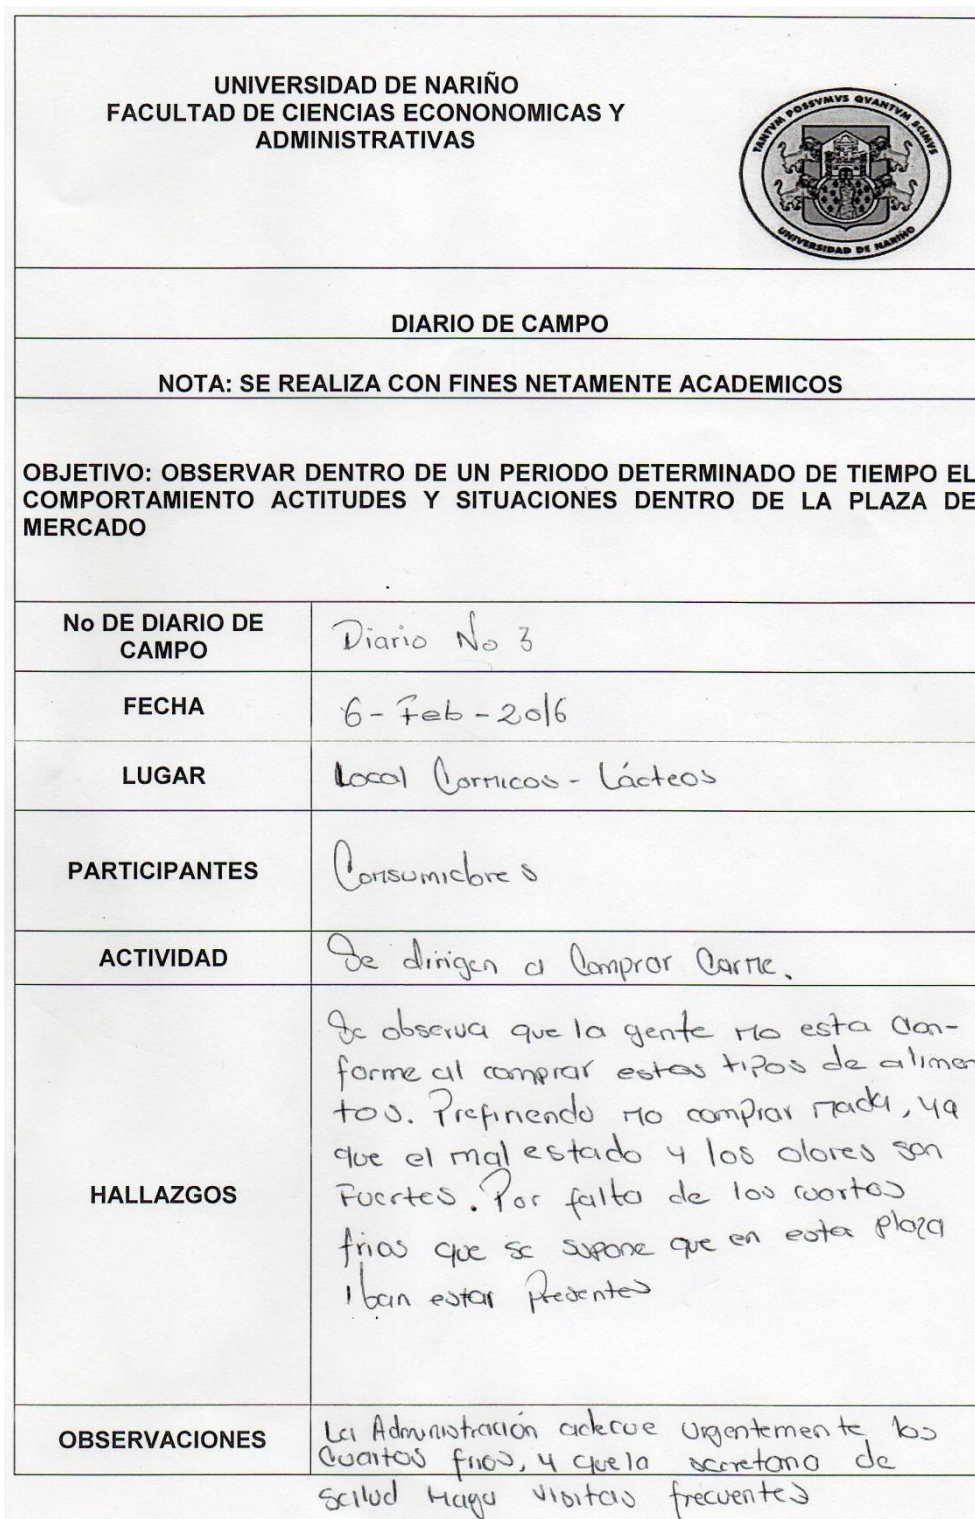 UNIVERSIDAD DE NARIÑO
FACULTAD DE CIENCIAS ECONONOMICAS Y
ADMINISTRATIVAS
TANTVM POSSVMVS QVANTVM SCIMVS
UNIVERSIDAD DE NARIÑO
DIARIO DE CAMPO
NOTA: SE REALIZA CON FINES NETAMENTE ACADEMICOS
OBJETIVO: OBSERVAR DENTRO DE UN PERIODO DETERMINADO DE TIEMPO EL
COMPORTAMIENTO ACTITUDES Y SITUACIONES DENTRO DE LA PLAZA DE
MERCADO
No DE DIARIO DE
CAMPO
Diario No 3
FECHA
6 - Feb - 2016
LUGAR
Local Carnicos - Lácteos
PARTICIPANTES
Consumidores
ACTIVIDAD
Se dirigen a Comprar Carne.
HALLAZGOS
Se observa que la gente no esta Con-
forme al comprar estos tipos de alimen
tos. Prefiriendo no comprar nada, ya
que el mal estado y los olores son
Fuertes. Por falta de los cuartos
frios que se supone que en esta plaza
Iban estar Presentes
OBSERVACIONES
La Administración adecue urgentemente los
Cuartos frios, y que la secretaria de
Salud Haga visitas frecuentes